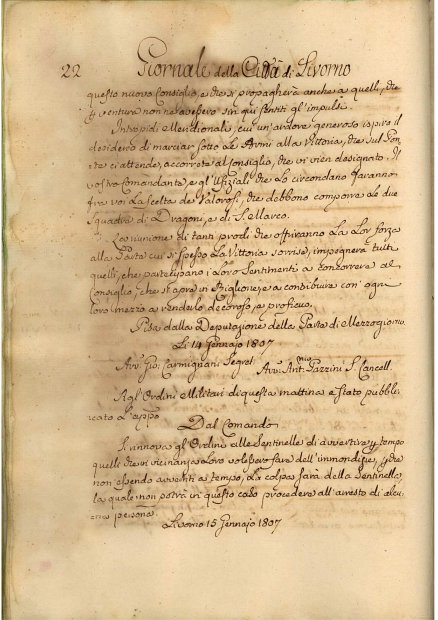 22 Giornale della Città di Livorno
questo nuovo Consiglio, e che si propagherà anche a quelli, che
p ventura non ne avessero sin qui sentiti gl'impulsi.
Intrepidi Meridionali, cui un'ardore generoso ispira il
desiderio di marciar sotto le Armi alla Vittoria, che sul Pon-
te ci attende, accorrete al Consiglio, che vi vien designato. Il
vostro Comandante, e gl'Ufiziali che Lo circondano faranno
fra voi La scelta de' Valorosi, che debbono comporre Le due
Squadre di Dragoni, e di S. Marco.
La riunione di tanti prodi che offriranno La Lor forza
alla Parte cui sì spesso La Vittoria sorrise, impegnerà tutti
quelli, che partecipano i Loro Sentimenti a concorrere al
Consiglio, che si apre in Biglione, e a contribuire con ogni
loro mezzo a renderlo decoroso, e proficuo.
Pisa dalla Deputazione della Parte di Mezzogiorno
Li 14 Gennajo 1807
Avv. Gio: Carmignani Segret. Avv. Ant.mio Pazzini S. Cancell.
Agl'Ordini Militari di questa mattina è stato pubbli-
cato L'appo
Dal Comando
Si rinnova gl'Ordini alle Sentinelle di avvertire p tempo
quelli che in vicinanza Loro volessero fare dell'immondizie, p che
non essendo avvertiti a tempo, La colpa sarà della Sentinella,
La quale non potrà in questo caso procedere all'arresto di alcu-
na persona.
Livorno 15 Gennajo 1807